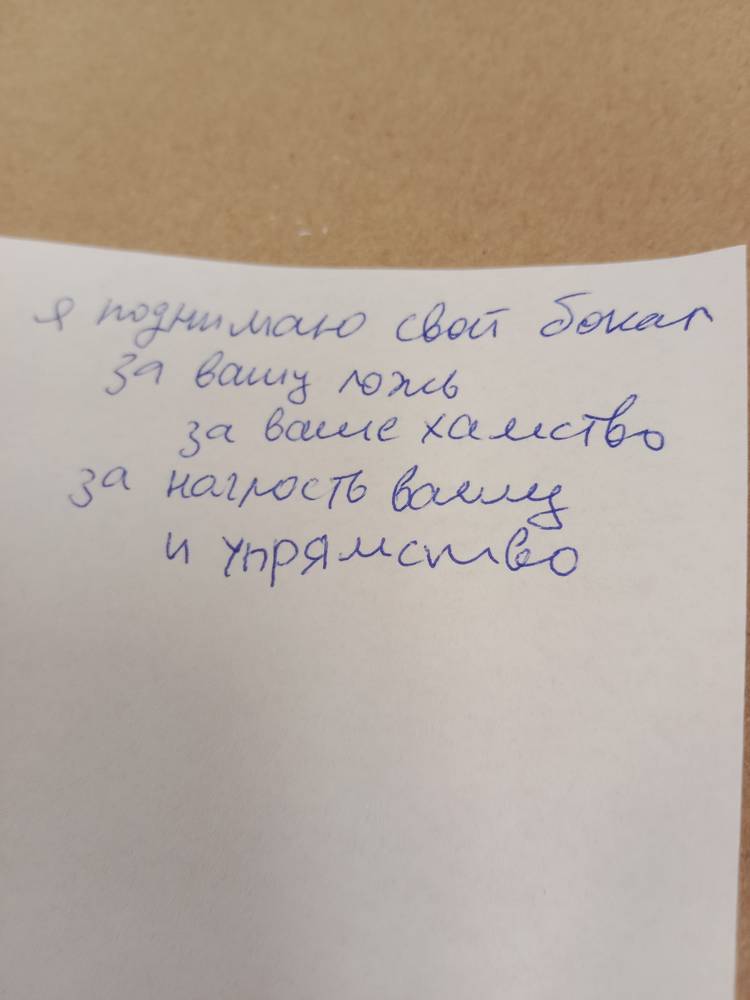 я поднимаю свой бокал
за вашу ложь
за ваше хамство
за наглость вашу
и упрямство